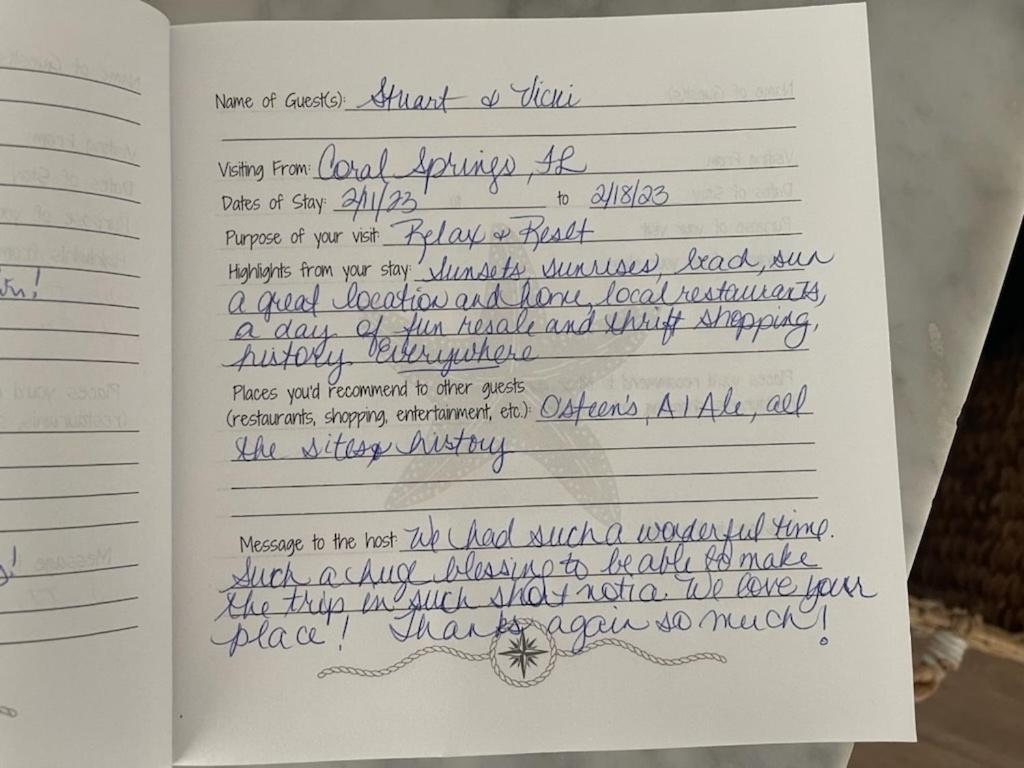 Name of Guest(s): Stuart & Vicki
Visiting From: Coral Springs, FL
Dates of Stay: 2/11/23 to 2/18/23
Purpose of your visit: Relax & Reset
Highlights from your stay: Sunsets, sunrises, beach, sun
a great location and home, local restaurants,
a day of fun resale and thrift shopping,
history everywhere
Places you'd recommend to other guests
(restaurants, shopping, entertainment, etc.): Osteen's, A1Ale, all
the sites & history
Message to the host: We had such a wonderful time.
Such a huge blessing to be able to make
the trip on such short notice. We love your
place! Thanks again so much!